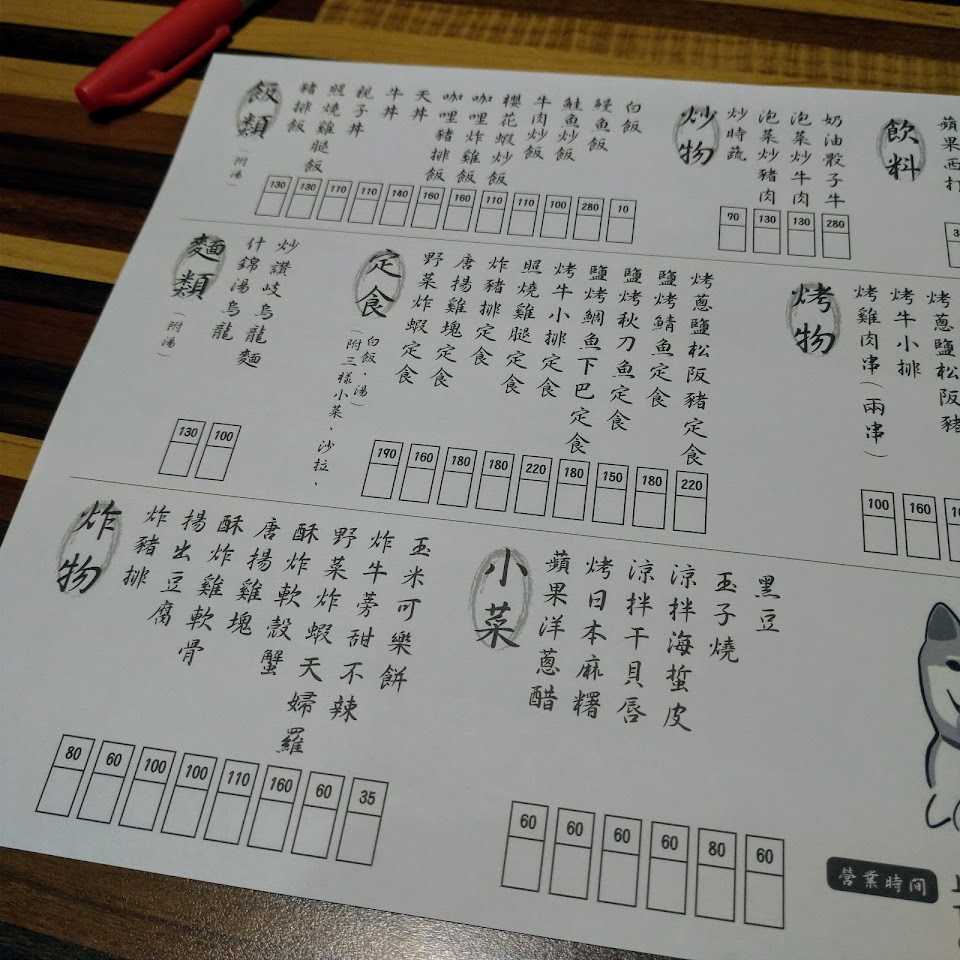 飯類
(附湯)
豬排飯
照燒雞腿飯
親子丼
牛丼
天丼
咖哩豬排飯
咖哩炸雞飯
櫻花蝦炒飯
牛肉炒飯
鮭魚炒飯
鰻魚飯
白飯
130 130 110 110 140 160 160 110 110 100 280 10
炒物
炒時蔬
泡菜炒豬肉
泡菜炒牛肉
奶油骰子牛
70 130 130 280
飲料
蘋果西打
麵類
(附湯)
什錦湯烏龍
炒讚岐烏龍麵
130 100
定食
(附三樣小菜、沙拉、
白飯、湯)
野菜炸蝦定食
唐揚雞塊定食
炸豬排定食
照燒雞腿定食
烤牛小排定食
鹽烤鯛魚下巴定食
鹽烤秋刀魚定食
鹽烤鯖魚定食
烤蔥鹽松阪豬定食
190 160 180 180 220 180 150 180 220
烤物
烤雞肉串(兩串)
烤牛小排
烤蔥鹽松阪豬
100 160
炸物
炸豬排
揚出豆腐
酥炸雞軟骨
唐揚雞塊
酥炸軟殼蟹
野菜炸蝦天婦羅
炸牛蒡甜不辣
玉米可樂餅
80 60 100 100 110 160 60 35
小菜
蘋果洋蔥醋
烤日本麻糬
涼拌干貝唇
涼拌海蜇皮
玉子燒
黑豆
60 60 60 60 80 60
營業時間